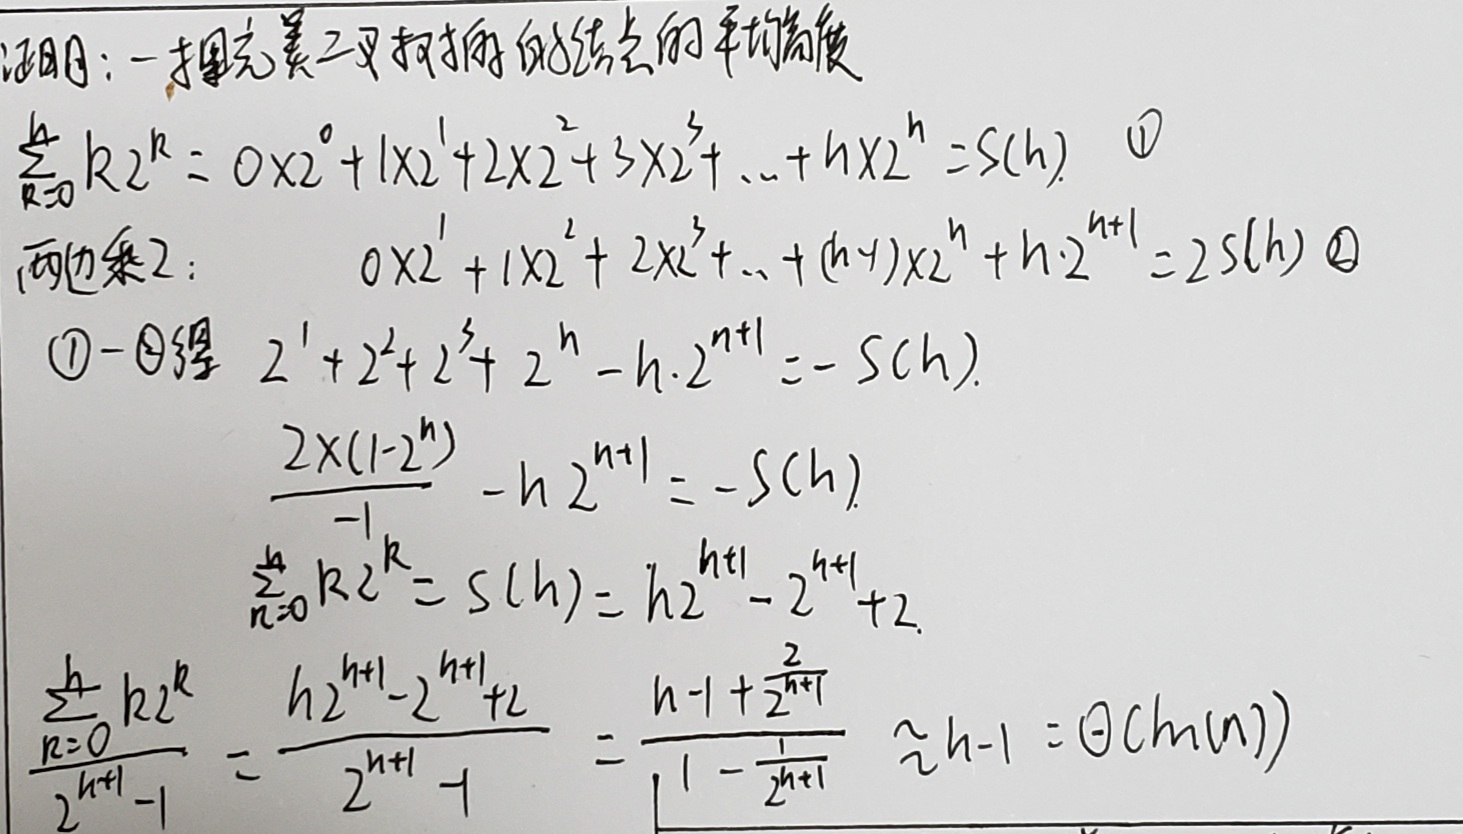 证明:一棵完美二叉树的结点的平均高度
∑_{k=0}^{h} k2^k = 0×2^0+1×2^1+2×2^2+3×2^3+…+h×2^h=S(h). ①
两边乘2: 0×2^1+1×2^2+2×2^3+…+(h-1)×2^h+h·2^{h+1}=2S(h) ②
①-②得 2^1+2^2+2^3+2^h-h·2^{h+1}=-S(h).
\frac{2×(1-2^h)}{-1} -h2^{h+1}=-S(h).
∑_{k=0}^{h} k2^k=S(h)=h2^{h+1}-2^{h+1}+2.
\frac{∑_{k=0}^{h} k2^k}{2^{h+1}-1} = \frac{h2^{h+1}-2^{h+1}+2}{2^{h+1}-1} = \frac{h-1+\frac{2}{2^{h+1}}}{1-\frac{1}{2^{h+1}}} ≈h-1=Θ(ln(n))